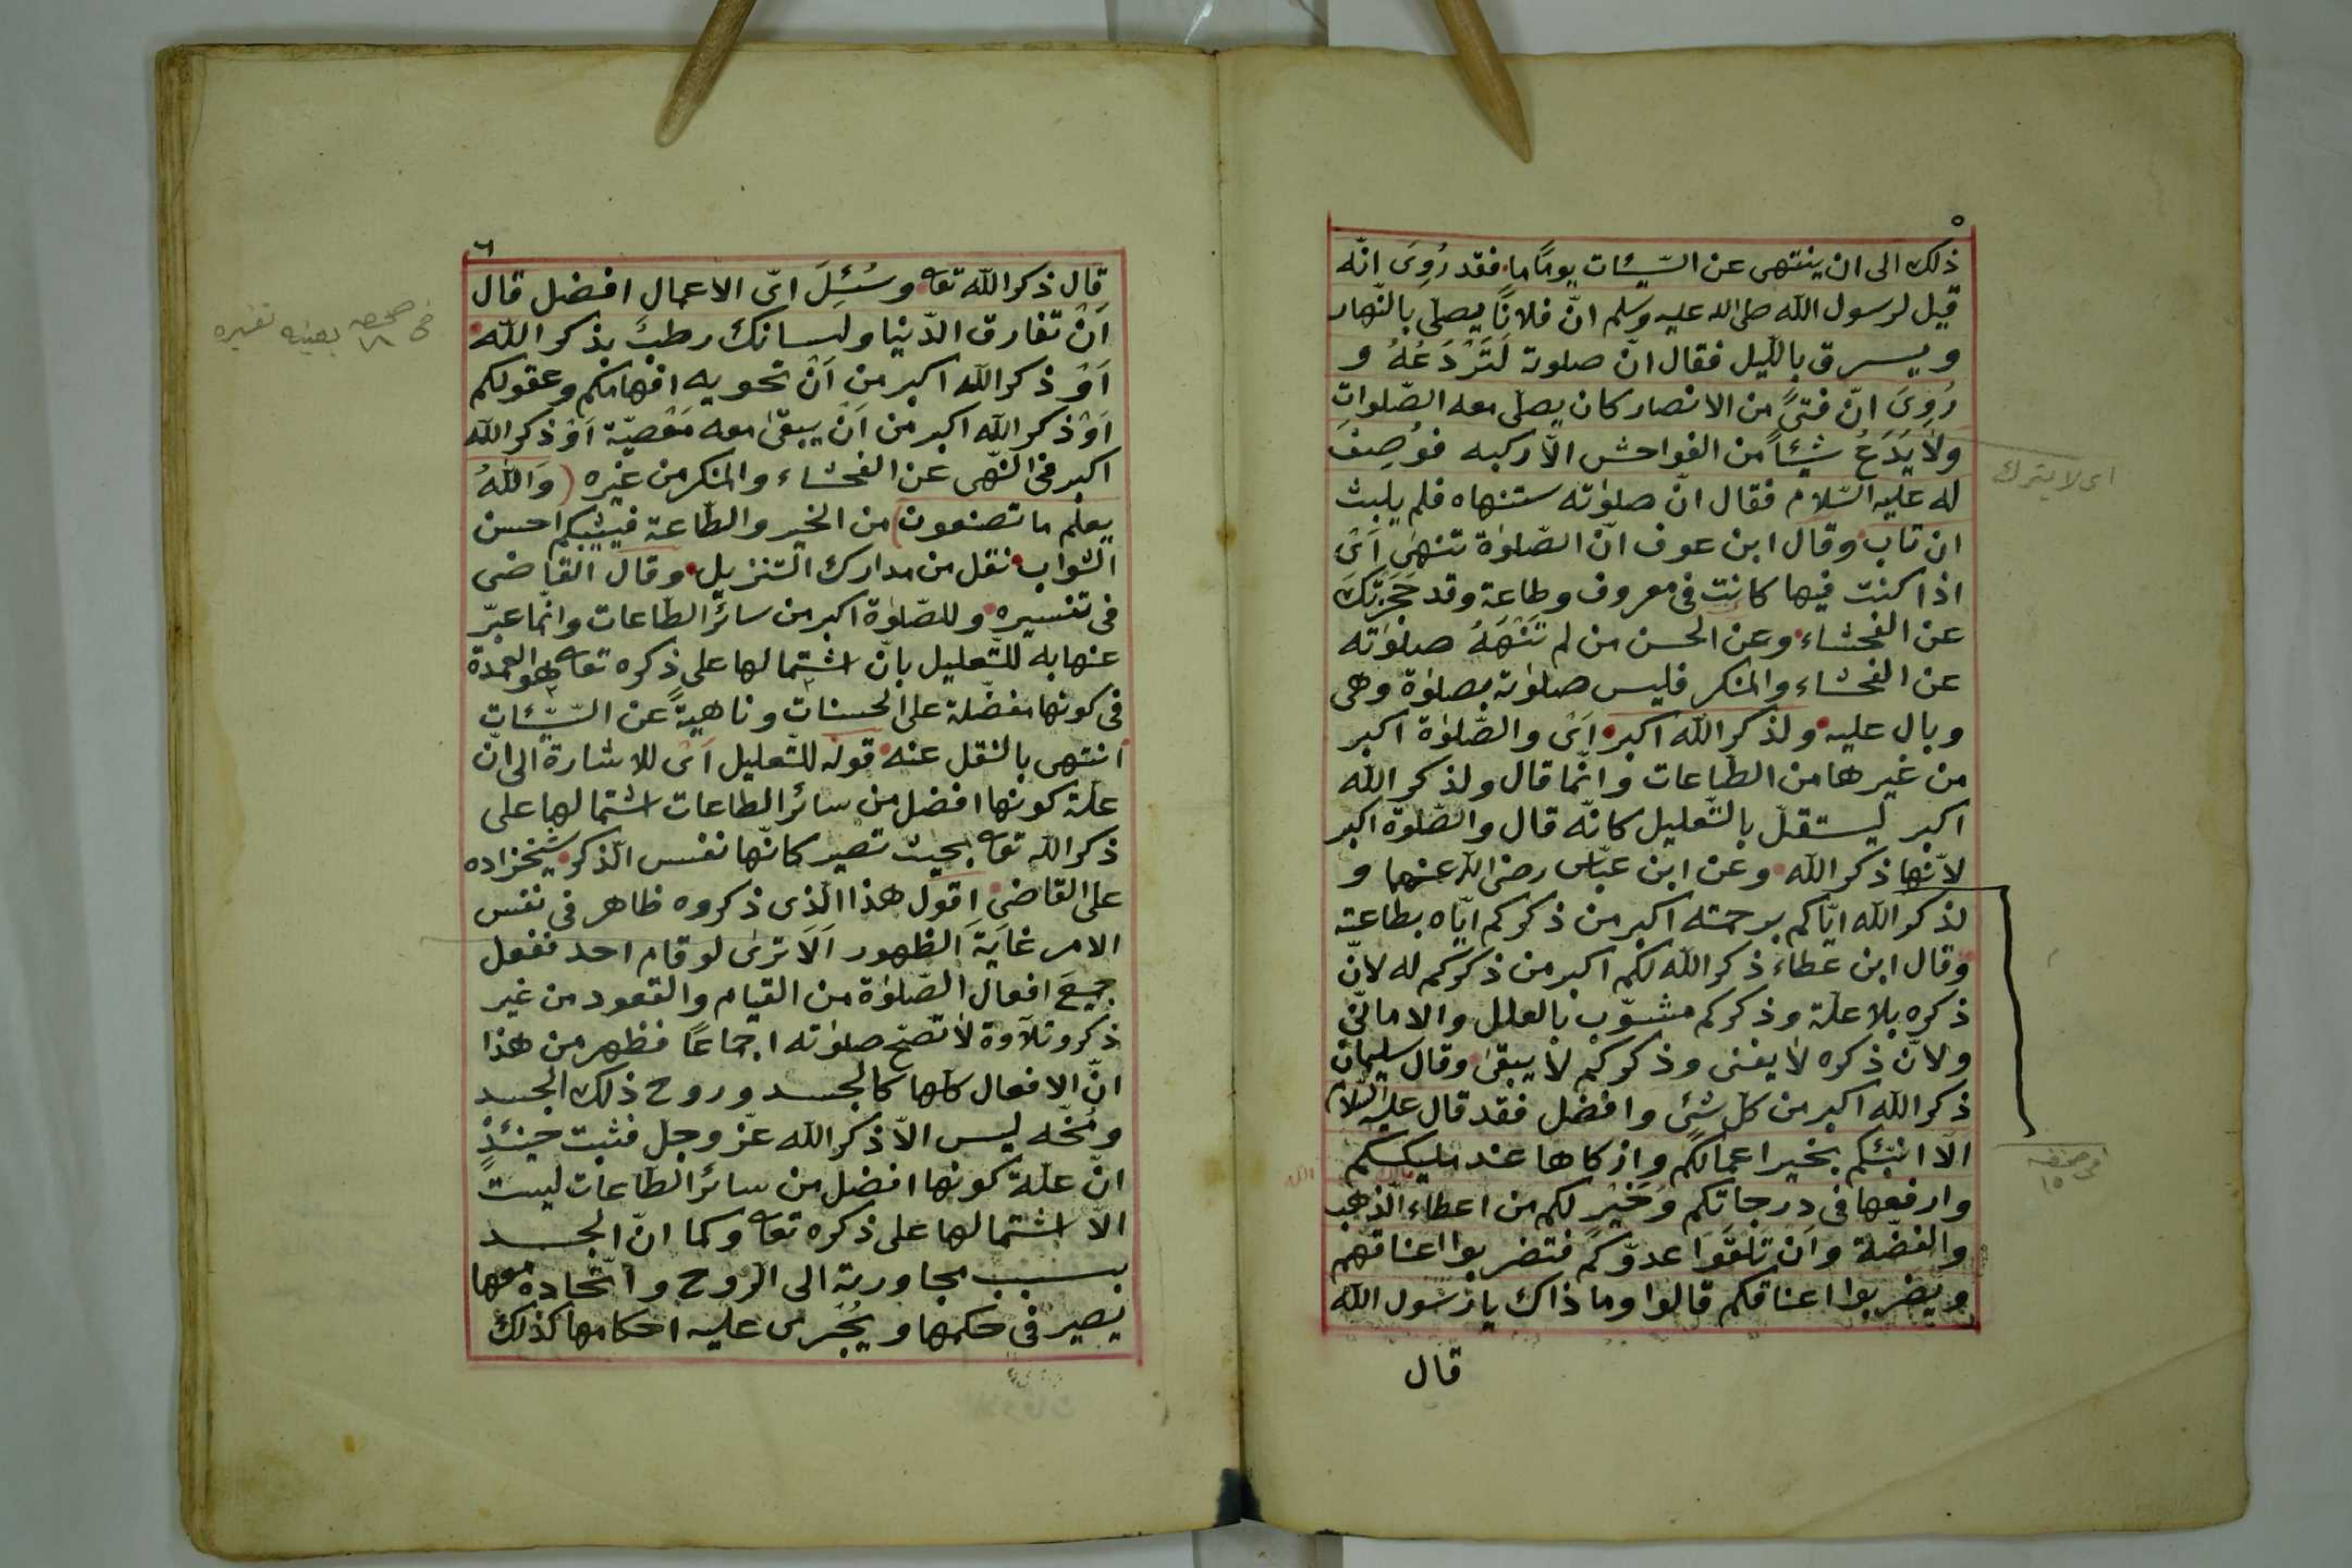 ٥
ذلك الى ان ينتهى عن السّيئات يومًا ما فقد رُوِىَ انّه
قيل لرسول الله صلى الله عليه وسلم انّ فلانًا يصلّى بالنّهار
ويسرق بالّليل فقال انّ صلوته لَتَرْدَعُهُ و
رُوِىَ انّ فتىً من الانصار كان يصلّى معه الصّلواتِ
ولا يَدَعُ شيئاً من الفواحش الاّ ركبه فوُصِفَ
اى لا يترك
له عليه السّلام فقال انّ صلوٰته ستنهاه فلم يلبث
ان تاب وقال ابن عوف انّ الصّلوٰة تنهٰى اَىْ
اذا كنت فيها كانت فى معروف وطاعة وقد حَجَزَتْكَ
عن الفحشاء وعن الحسن من لم تَنْهَهُ صلوٰته
عن الفحشاء والمنكر فليس صلوٰته بصلوٰة وهى
وبال عليه ولذكر الله اكبر اَىْ والصّلوٰة اكبر
من غيرها من الطّاعات وانّما قال ولذكر الله
اكبر ليستقلّ بالتّعليل كانّه قال والصّلوٰة اكبر
لانّها ذكر الله وعن ابن عبّاس رضى الله عنهما و
لذكر الله ايّاكم برحمته اكبر من ذكركم ايّاه بطاعته
وقال ابن عطاء ذكر الله لكم اكبر من ذكركم له لانّ
ذكره بلا علّة وذكركم مشوّب بالعلل والامانّى
ولانّ ذكره لا يفنى وذكركم لا يبقىٰ وقال سليمان
ذكر الله اكبر من كلّ شئٍ وافضل فقد قال عليه السّلام
الَا انبّئكم بخير اعمالكم وازكاها عند مليككم
فى صحفه ١٥
وارفعها فى درجاتكم وَخَيْرٍ لكم من اعطاء الذّهب
والفضّة وَاَنْ تَلَقَوا عدوّكم فتضربوا اعناقهم
ويضربوا اعناقكم قالوا وما ذاك يا رسول الله
قال
٦
قال ذكر الله تعا وسُئِلَ اىّ الاعمال افضل قال
اَنْ تفارق الدّنيا ولسانك رطب بذكر اللّه
فى صحيفه ١٨ بعينه تفسيره
اَوْ ذكر الله اكبر من اَنْ تحويه افهامكم وعقولكم
اَوْ ذكر الله اكبر من اَنْ يبقىٰ معه مَعْصيّة اَوْ ذكر الله
اكبر فى النّهى عن الفحشاء والمنكر من غيره (وَاللهُ
يعلم ما تصنعون) من الخير والطّاعة فيثيبكم احسن
الثواب نقل من مدارك التنزيل وقال القاضى
فى تفسيره وللصّلوٰة اكبر من سائر الطّاعات وانّما عبّر
عنها به للتّعليل بانّ اشتمالها على ذكره تعا هو العمدة
فى كونها مفضّلة على الحسنات وناهيةً عن السّيّئات
انتهى بالنقل عنه قوله للتّعليل اَىْ للاشارة الى انّ
علّة كونها افضل من سائر الطاعات اشتمالها على
ذكر الله تعا بحيث تصير كانّها نفس الذّكر شيخزاده
على القاضى اقول هذا الّذى ذكروه ظاهر فى نفس
الامر غايَةَ الظهور اَلَا ترىٰ لو قام احد ففعل
جميعَ افعال الصّلوٰة من القيام والقعود من غير
ذكر وتلاوة لا تصّح صلوٰته اجماعًا فظهر من هذا
انّ الافعال كلّها كالجسد وروح ذلك الجسد
ومُخّه ليس الاّ ذكر الله عزّ وجلّ فثبت حينئذٍ
انّ علّة كونها افضل من سائر الطّاعات ليست
الاّ اشتمالها على ذكره تعا وكما انّ الجسد
بسبب مجاورته الى الرّوح واتّحاده معها
يصير فى حكمها ويُجْرى عليه احكامها كذلك